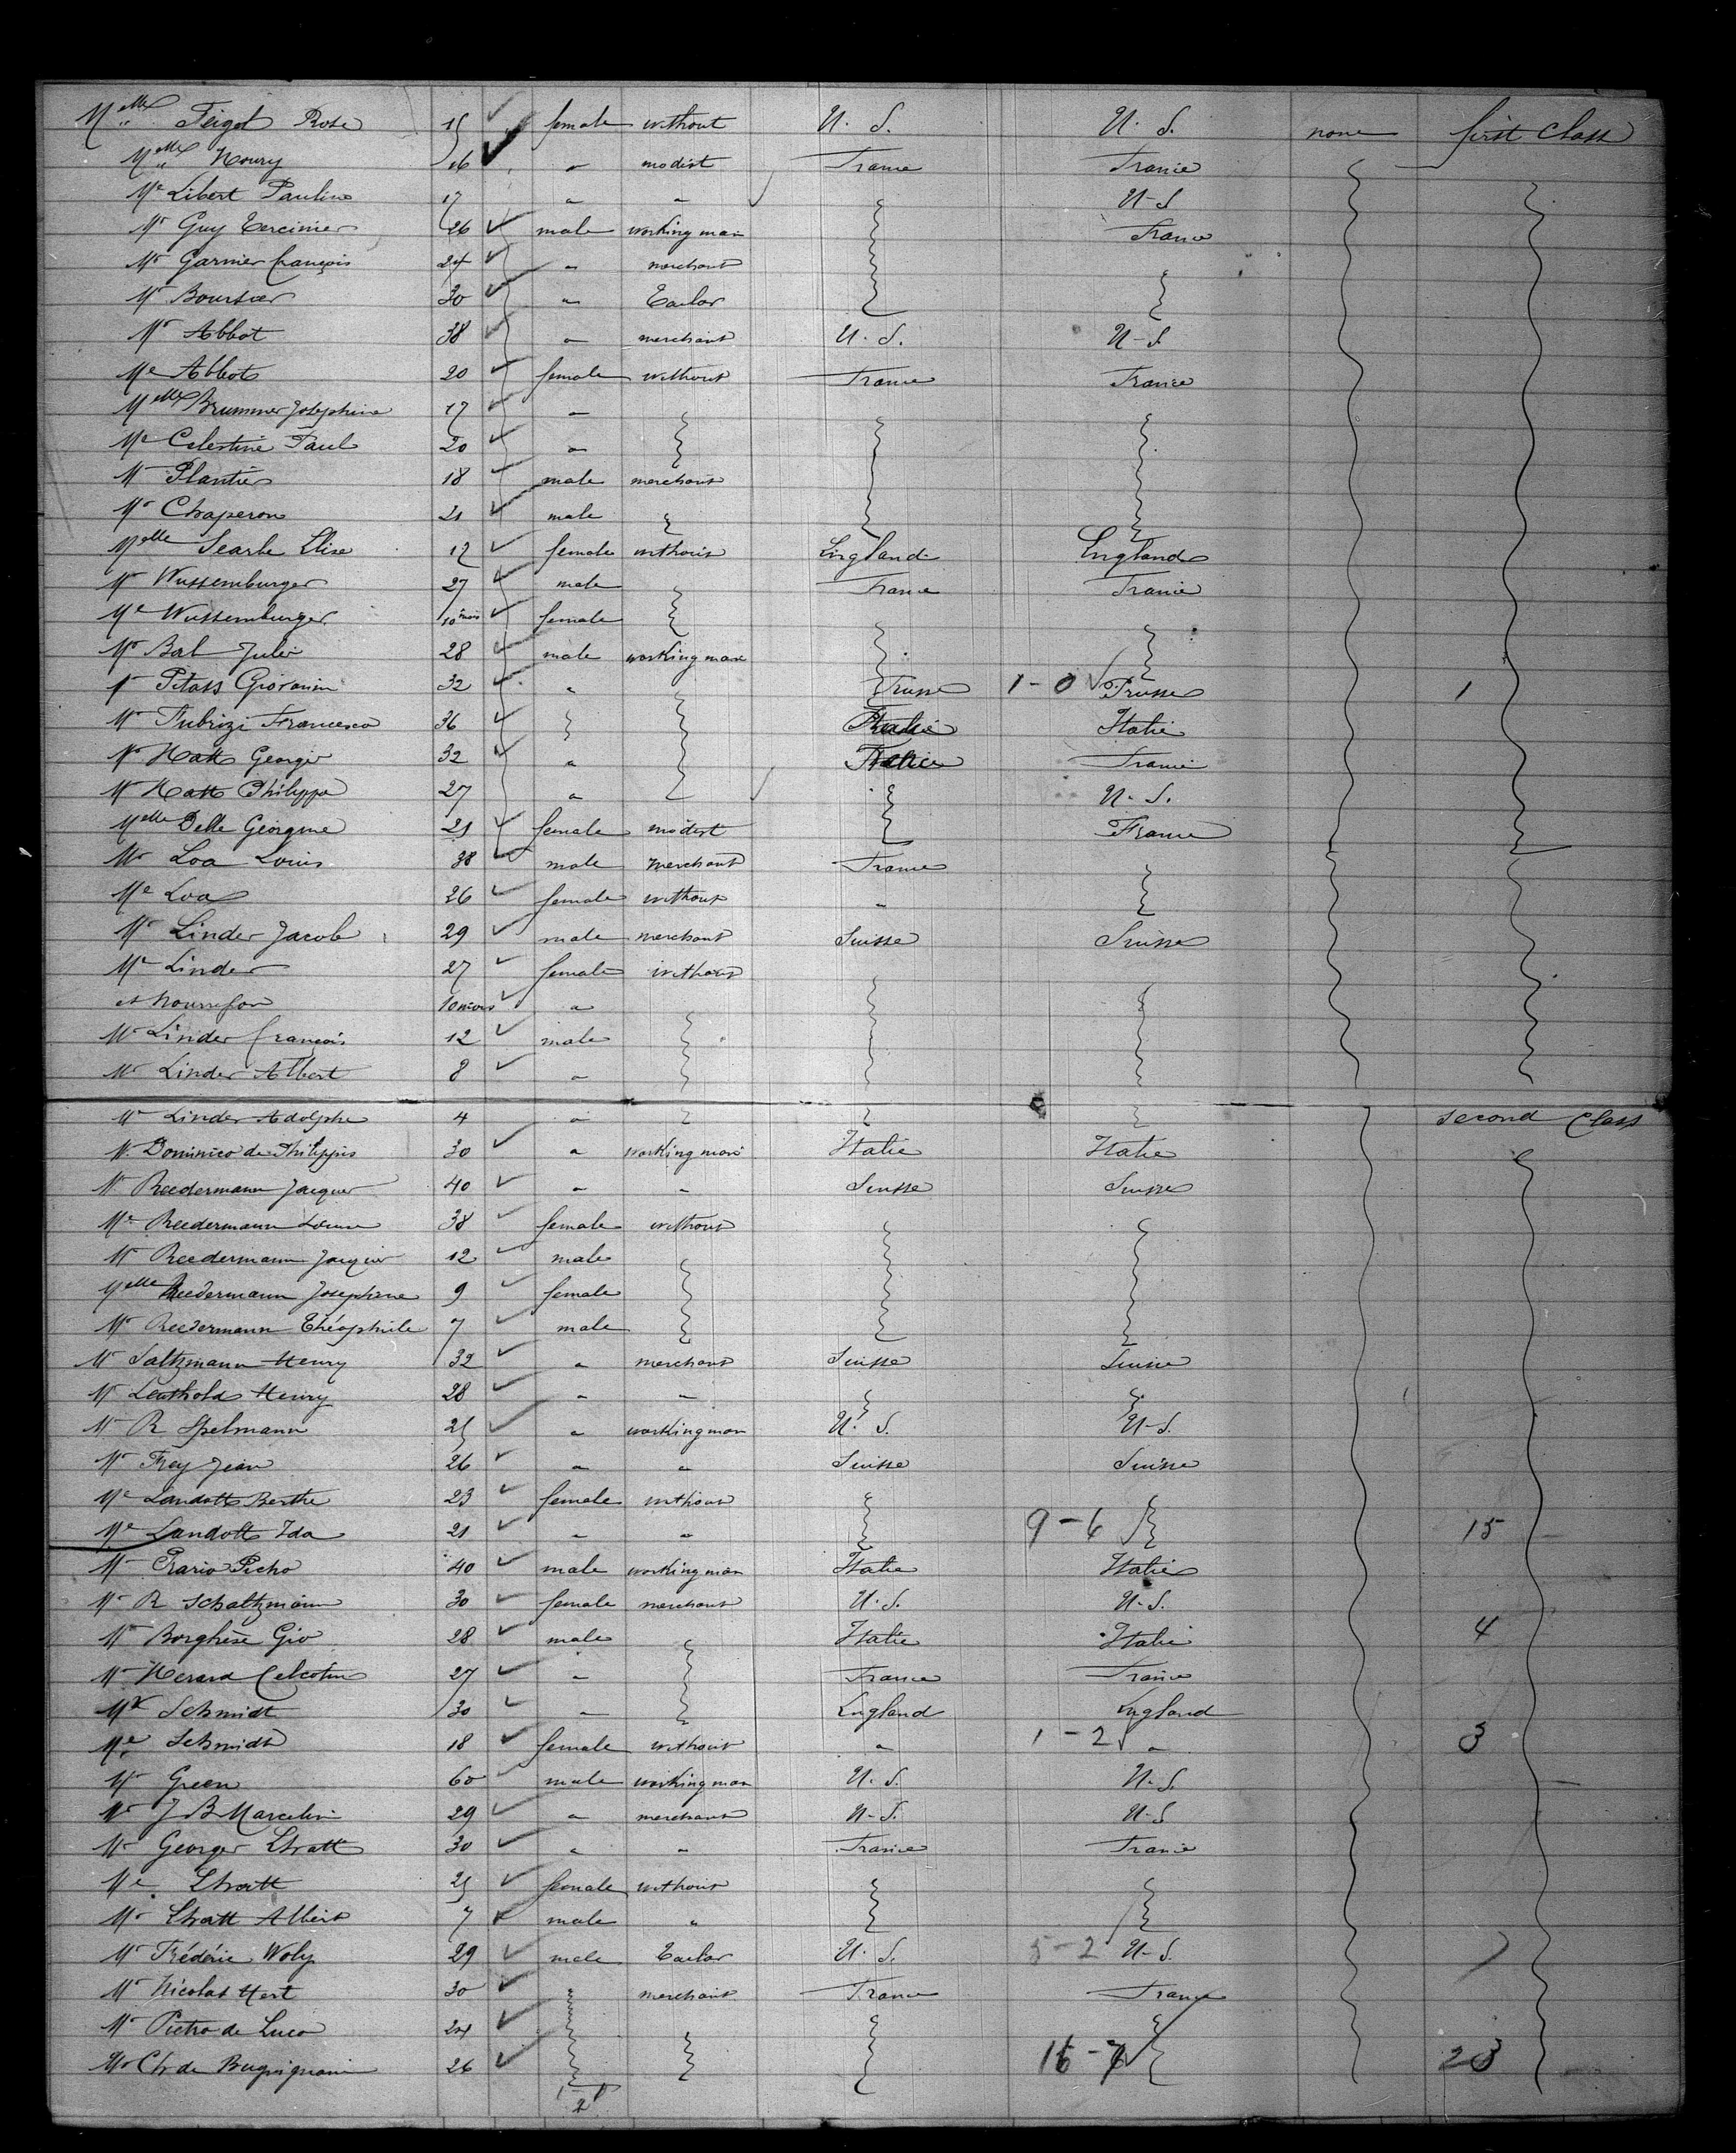 Melle Feigel Rose 15 female without U. S. U. S. none first Class
Melle Noury 26 " modist France France
Me Libert Pauline 17 " " U-S
Mr Guy 26 male working man France
Mr Garnier françois 24 " merchant
Mr Boursier 30 " Tailor
Mr Abbot 38 " merchant U. S. U-S
Me Abbot 20 female without France France
Melle Brummer Josephine 17 "
Me Celestine Paul 20 "
Mr Plantier 18 male merchant
Mr Chaperon 21 male
Melle Searle Elise 17 female without England England
Mr Wussemburger 27 male France France
Me Wussemburger 10 mois female
Mr Julie 28 male working man
Mr Giovanni 32 " Prusse 1-0 Prusse 1
Mr Fubrizi Francesco 36 Italie Italie
Mr Hatt George 32 " France
Mr Hatt Philippe 27 " U. S.
Melle Belle Georgine 21 female modist France
Mr Loa Louis 38 male merchant France
Me Loa 26 female without "
Mr Linder Jacob 29 male merchant Suisse Suisse
Me Linder 27 female without
et 10 mois "
Mr Linder françois 12 male
Mr Linder Albert 8 "
Mr Linder Adolphe 4 " second Class
Mr Dominico de Philippis 30 " working man Italie Italie
Mr Reedermann Jacques 40 " " Suisse Suisse
Me Reedermann 38 female without
Mr Reedermann Jacques 12 male
Melle Reedermann Josephine 9 female
Mr Reedermann Théophile 7 male
Mr Saltzmann Henry 32 " merchant Suisse Suisse
Mr Leuthold Henry 28 " "
Mr R Spelmann 25 " working man U. S. U-S.
Mr Frey Jean 26 " " Suisse Suisse
Me Landott Berthe 23 female without
Me Landott Ida 21 " " 9-6 15
Mr Picho 40 male working man Italie Italie
Mr R Schaltzmann 30 female merchant U. S. U-S.
Mr Borghèse Gio 28 male Italie Italie 4
Mr Herard 27 " France France
Mr Schmidt 30 " England England
Me Schmidt 18 female without " 1-2 " 3
Mr Green 60 male working man U. S. U-S.
Mr J B Marcelin 29 " merchant U-S. U-S
Mr George Stratt 30 " " France France
Me Stratt 25 female without
Mr Stratt Albert 7 male "
Mr Fréderic Woly 29 male Tailor U. S. 5-2 U-S.
Mr Nicolas Hert 30 merchant France France
Mr Pietro de Luca 24
Mr Ch de 26 16-7 23